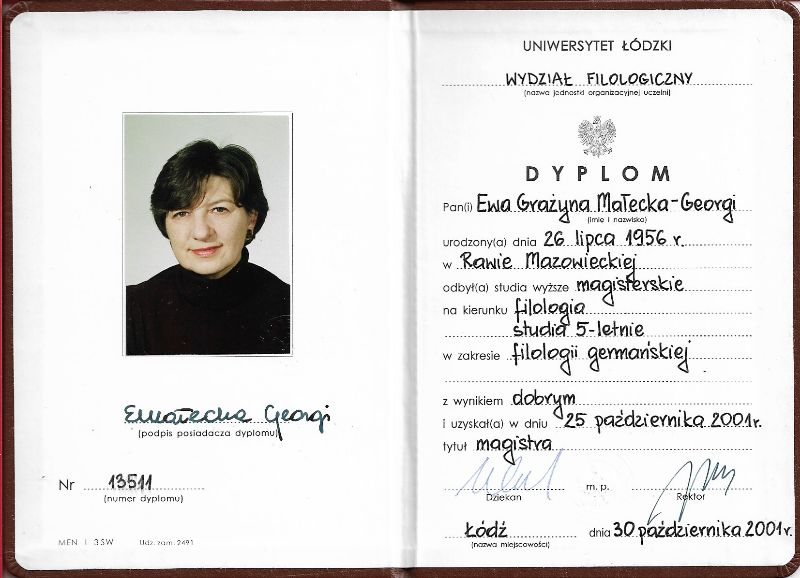 EMałecka Georgi
(podpis posiadacza dyplomu)
Nr 13511
(numer dyplomu)
MEN I 3SW Udz. zam. 2491
UNIWERSYTET ŁÓDZKI
WYDZIAŁ FILOLOGICZNY
(nazwa jednostki organizacyjnej uczelni)
DYPLOM
Pan(i) Ewa Grażyna Małecka-Georgi
(imię i nazwisko)
urodzony(a) dnia 26 lipca 1956 r.
w Rawie Mazowieckiej
odbył(a) studia wyższe magisterskie
na kierunku filologia
studia 5-letnie
w zakresie filologii germańskiej
z wynikiem dobrym
i uzyskał(a) w dniu 25 października 2001r.
tytuł magistra
Dziekan m. p. Rektor
Łódź dnia 30 października 2001r.
(nazwa miejscowości)